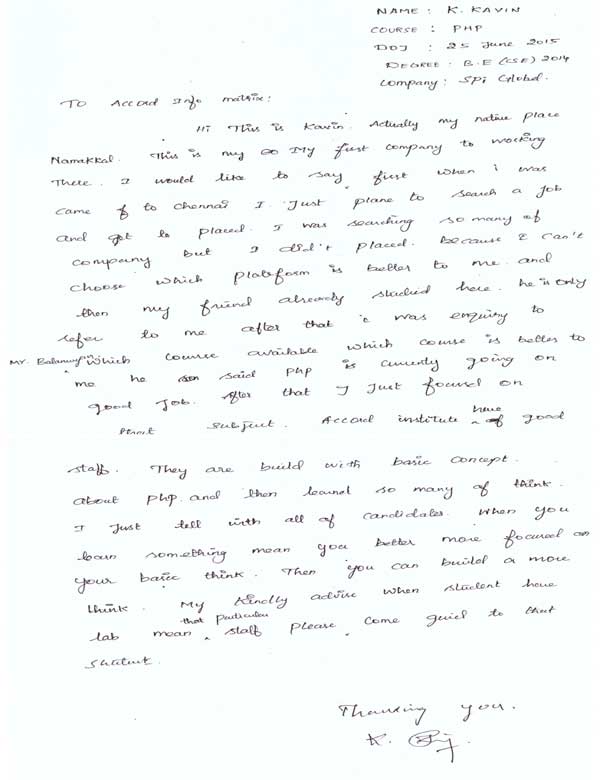 NAME : K. KAVIN
COURSE : PHP
DOJ : 25 June 2015
DEGREE : B.E (CSE) 2014
Company : SPi Global.
To Accord Info matrix:
Hi This is Kavin. Actually my native place
Namakkal. This is my My first company to working
There. I would like to say first when i was
came to chennai I Just plane to search a job
and got to placed. I was searching so many of
company but I didn't placed. because I can't
choose which plateform is better to me. and
then my friend already studied here. he is only
refer to me after that i was enquiry to
Mr. Which course available which course is better to
me he said PHP is currently going on
good Job. After that I Just focused on
subject. Accord institute have of good
staff. They are build with basic concept.
about PHP. and then learnd so many of think.
I Just tell with all of candidates. When you
learn something mean you better more focused on
your basic think. Then you can build a more
think. My kindly advise when student have
lab mean that particular staff please come to that
Thanking you.
K.